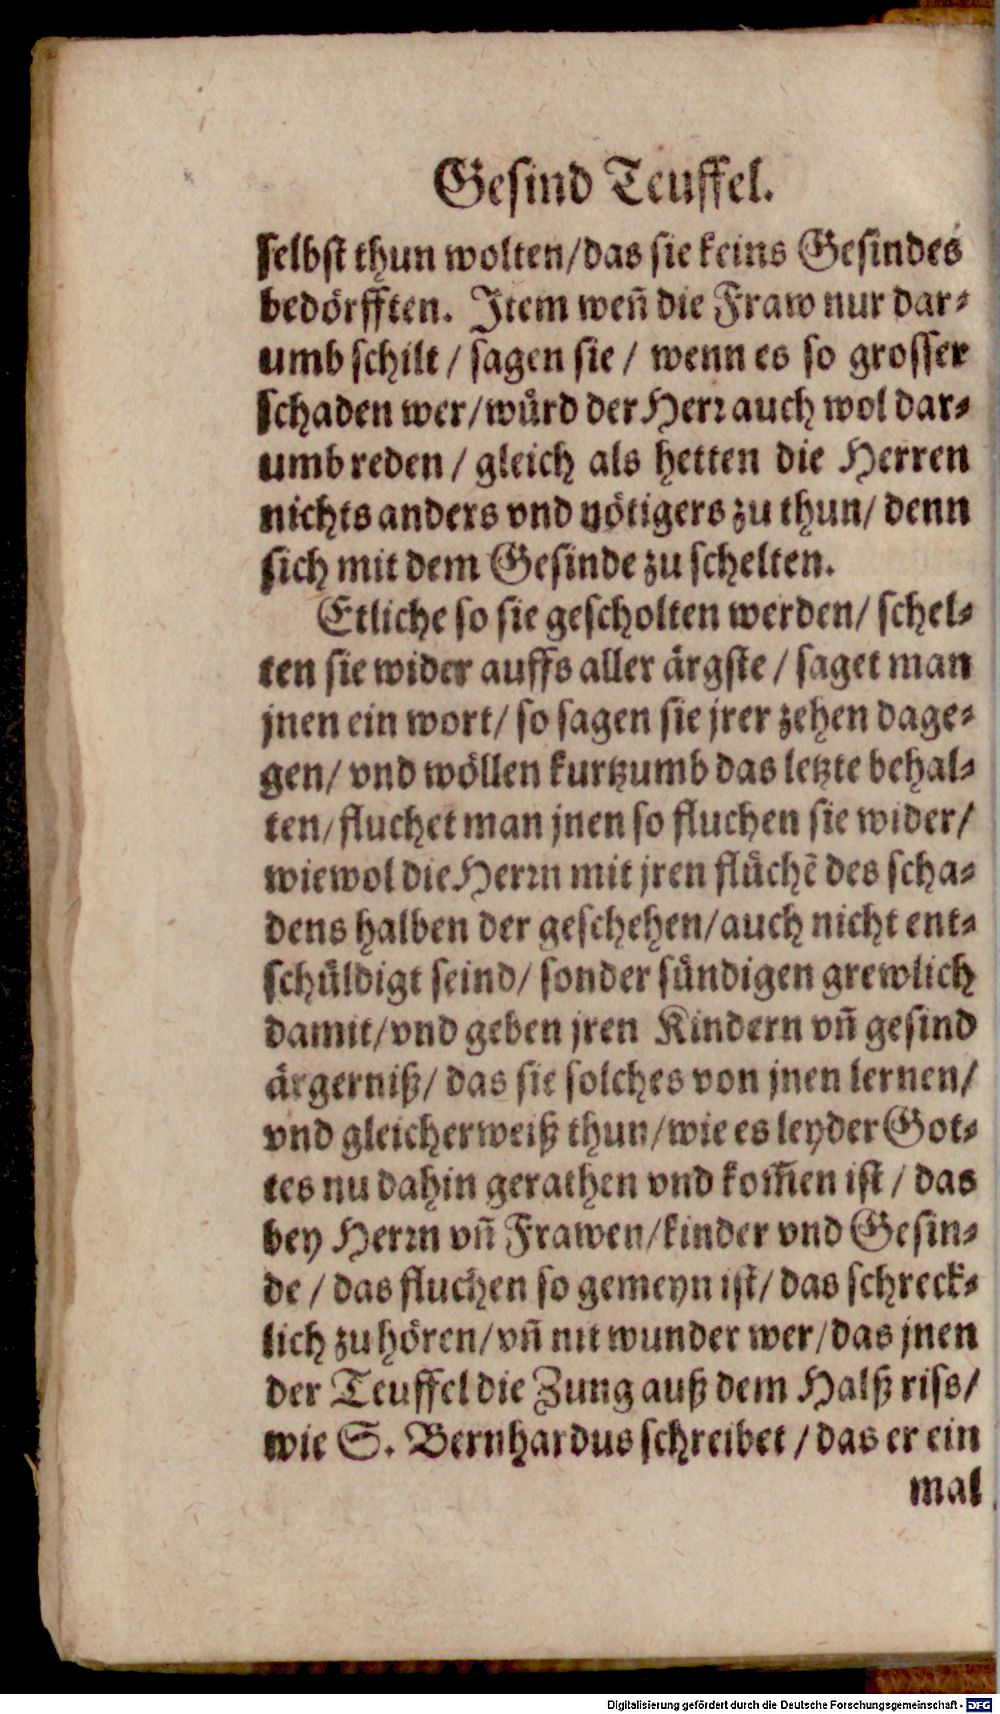 Gesind Teuffel.
selbst thun wolten/das sie keins Gesindes
bedörfften. Item weñ die Fraw nur dar⸗
umb schilt / sagen sie / wenn es so grosser
schaden wer/würd der Herr auch wol dar⸗
umb reden / gleich als hetten die Herren
nichts anders vnd nötigers zu thun/ denn
sich mit dem Gesinde zu schelten.
Etliche so sie gescholten werden/ schel⸗
ten sie wider auffs aller ärgste / saget man
jnen ein wort/ so sagen sie jrer zehen dage⸗
gen/ vnd wöllen kurtzumb das letzte behal⸗
ten/fluchet man jnen so fluchen sie wider/
wiewol die Herrn mit jren flüchẽ des scha⸗
dens halben der geschehen/auch nicht ent⸗
schüldigt seind/ sonder sündigen grewlich
damit/vnd geben jren Kindern vñ gesind
ärgerniß/ das sie solches von jnen lernen/
vnd gleicherweiß thun/wie es leyder Got⸗
tes nu dahin gerathen vnd kom̃en ist / das
bey Herrn vñ Frawen/kinder vnd Gesin⸗
de / das fluchen so gemeyn ist/ das schreck⸗
lich zu hören/vñ nit wunder wer/das jnen
der Teuffel die Zung auß dem Halß riss/
wie S. Bernhardus schreibet / das er ein
mal
Digitalisierung gefördert durch die Deutsche Forschungsgemeinschaft - DFG